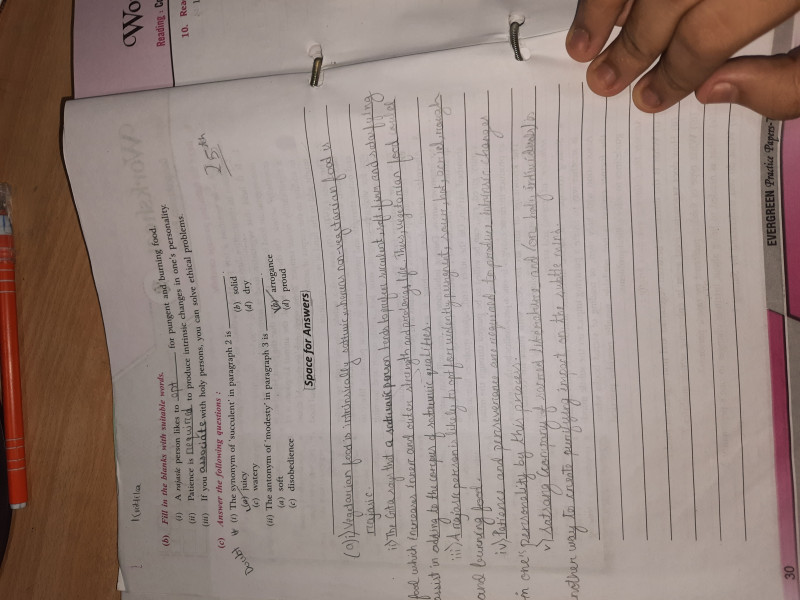 Wo
Reading : Co
10. Rea
(b) Fill in the blanks with suitable words.
(i) A rajasic person likes to opt for pungent and burning food.
(ii) Patience is required to produce intrinsic changes in one's personality.
(iii) If you associate with holy persons, you can solve ethical problems.
25th
(c) Answer the following questions :
Doubt
(i) The synonym of 'succulent' in paragraph 2 is
(a) juicy (b) solid
(c) watery (d) dry
(ii) The antonym of 'modesty' in paragraph 3 is
(a) soft (b) arrogance
(c) disobedience (d) proud
Space for Answers
(a) i) Vegetarian food is intrinsically sattwic whereas non-vegetarian food is
rajasic.
ii) The Gita says that a sattwic person tends to prefer succulent soft firm and satisfying
food which increases inner and outer strength and prolongs life. Thus vegetarian food would
assist in adding to the corpus of sattwic qualities.
iii) A rajasic person is likely to opt for violently pungent, sour hot, and rough
and burning food.
iv) Patience and perseverance are required to produce intrinsic changes
in one's personality by this process.
v) Satsang (company of sacred literature and/or holy individuals) is
another way to create purifying impact on the subtle mind.
EVERGREEN Practice Papers-
30